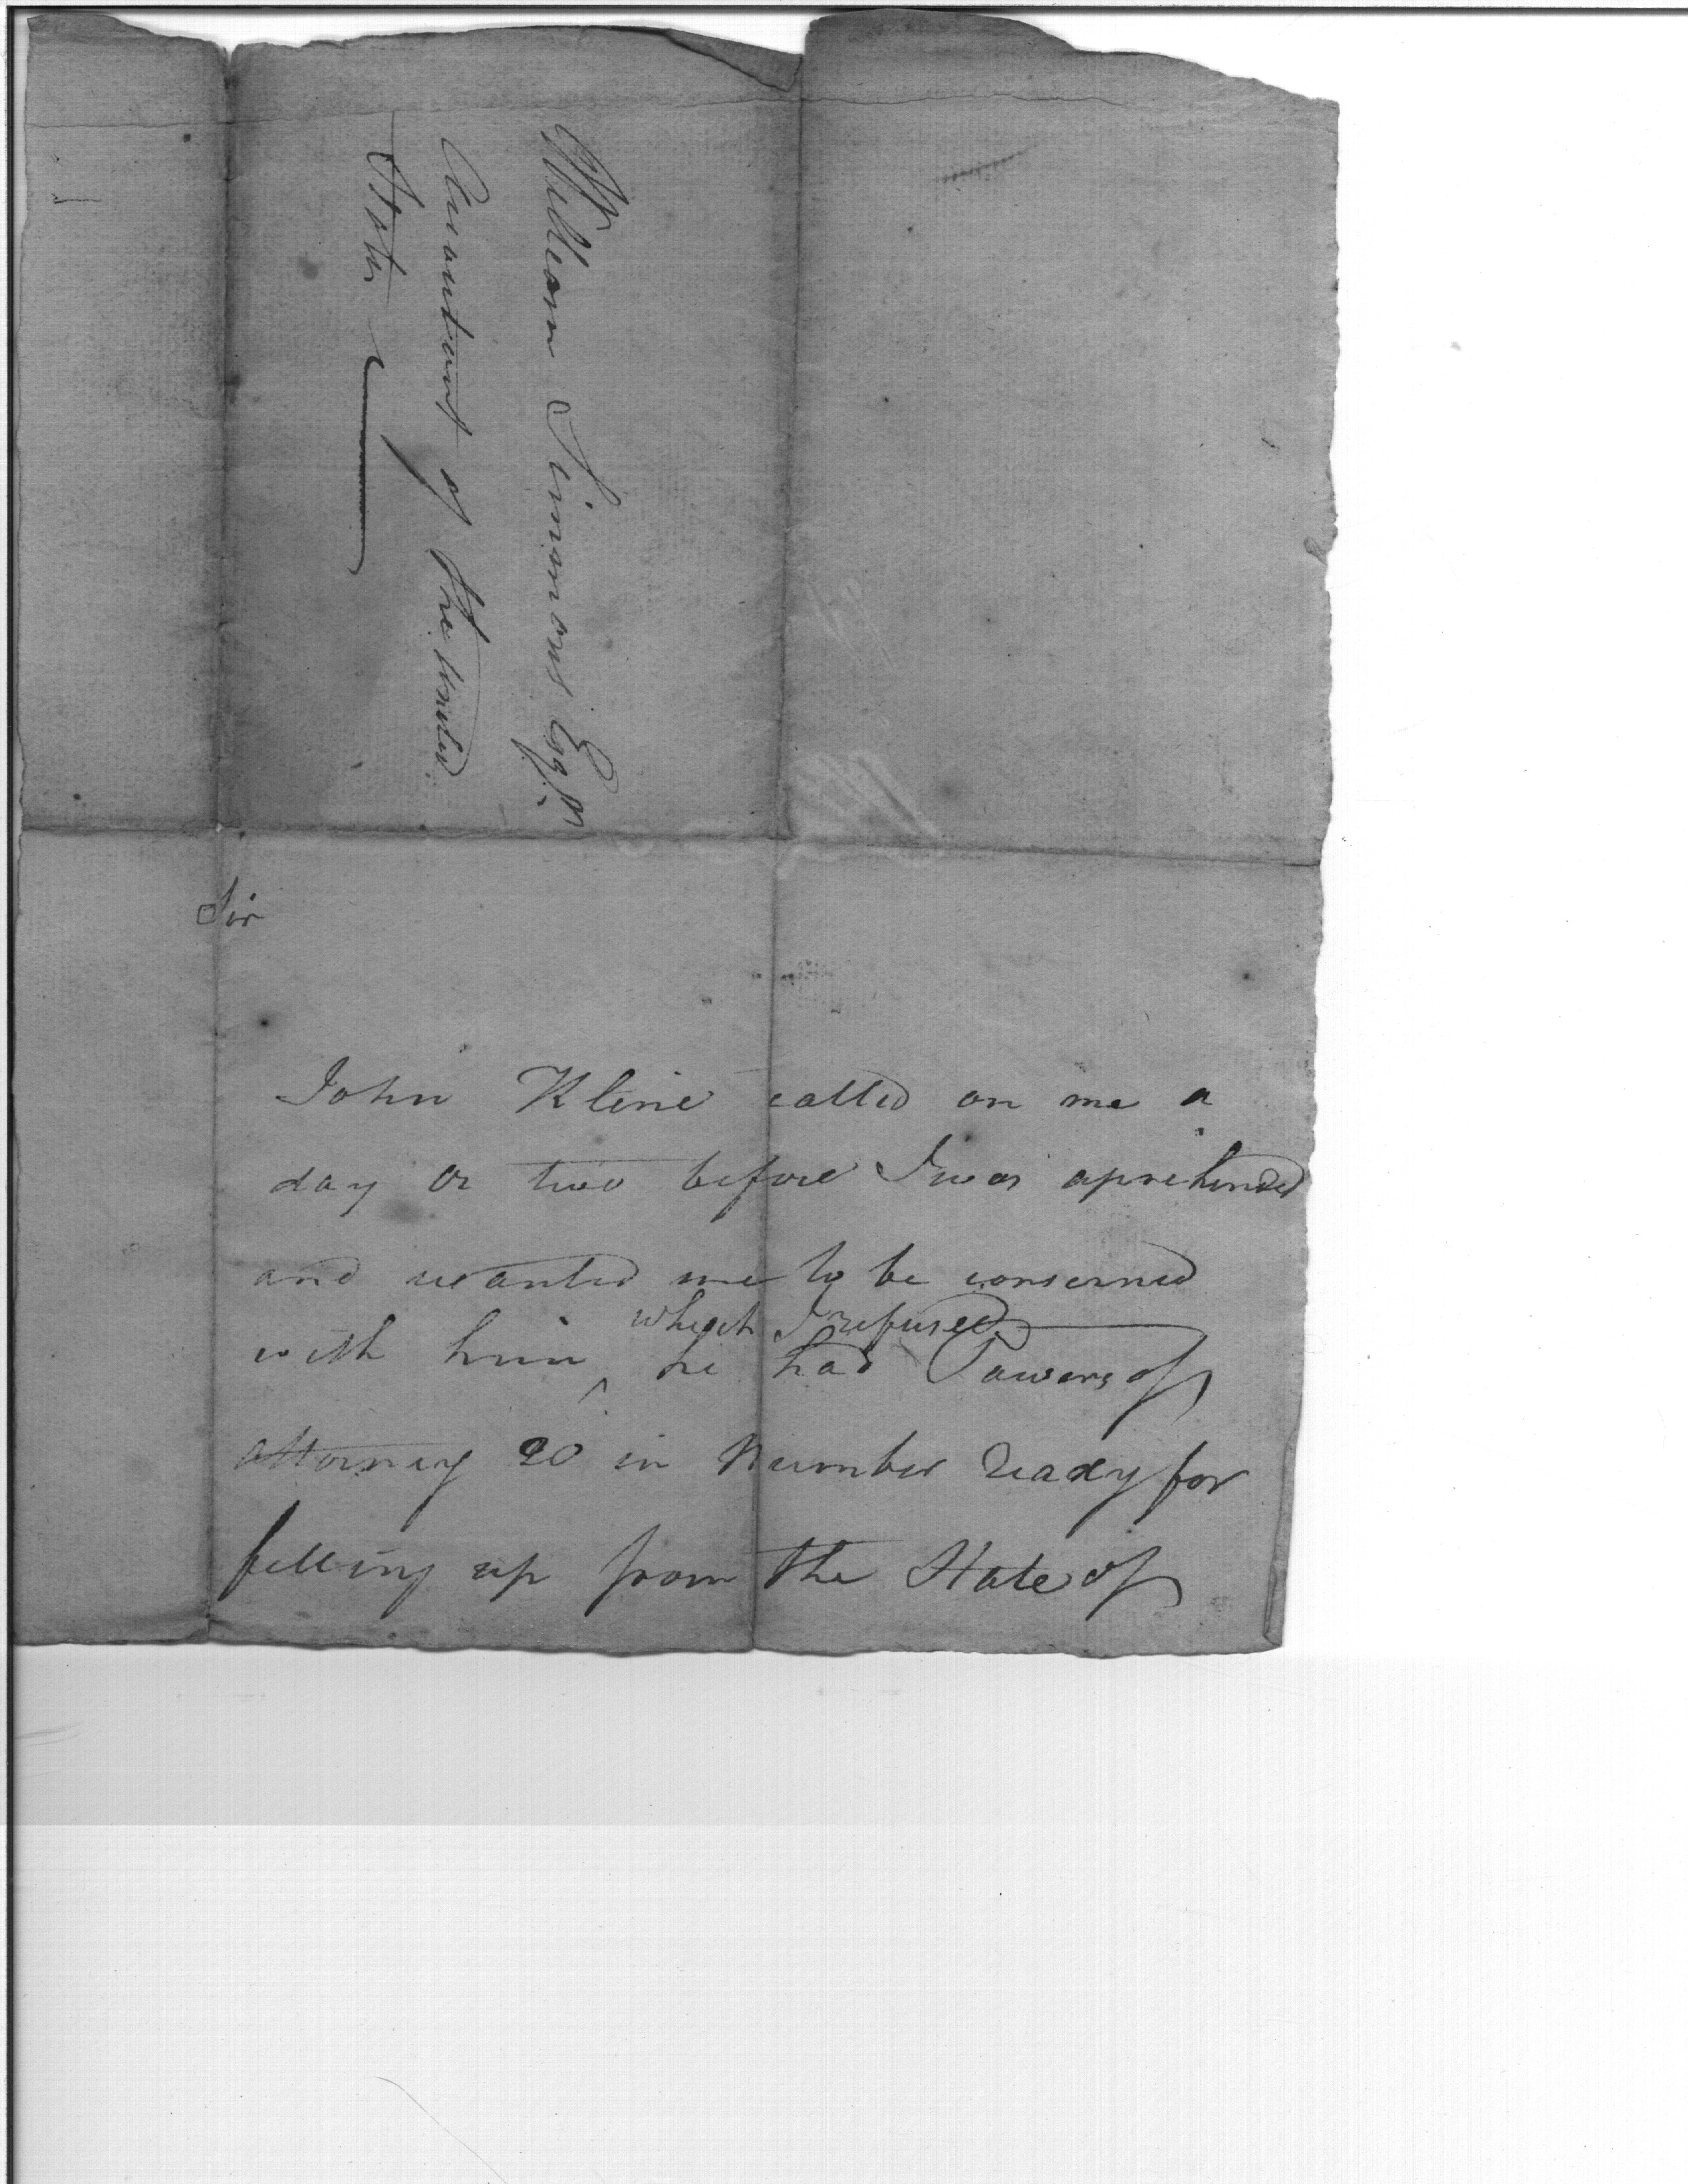 William Simmons Esqr.
Accountant of the United
States
Sir
John Kline called on me a
day or two before I was aprehended
and wanted me to be conserned
which I refused
with him ^ he had Powers of
attorney 20 in Number ready for
filling up from the State of